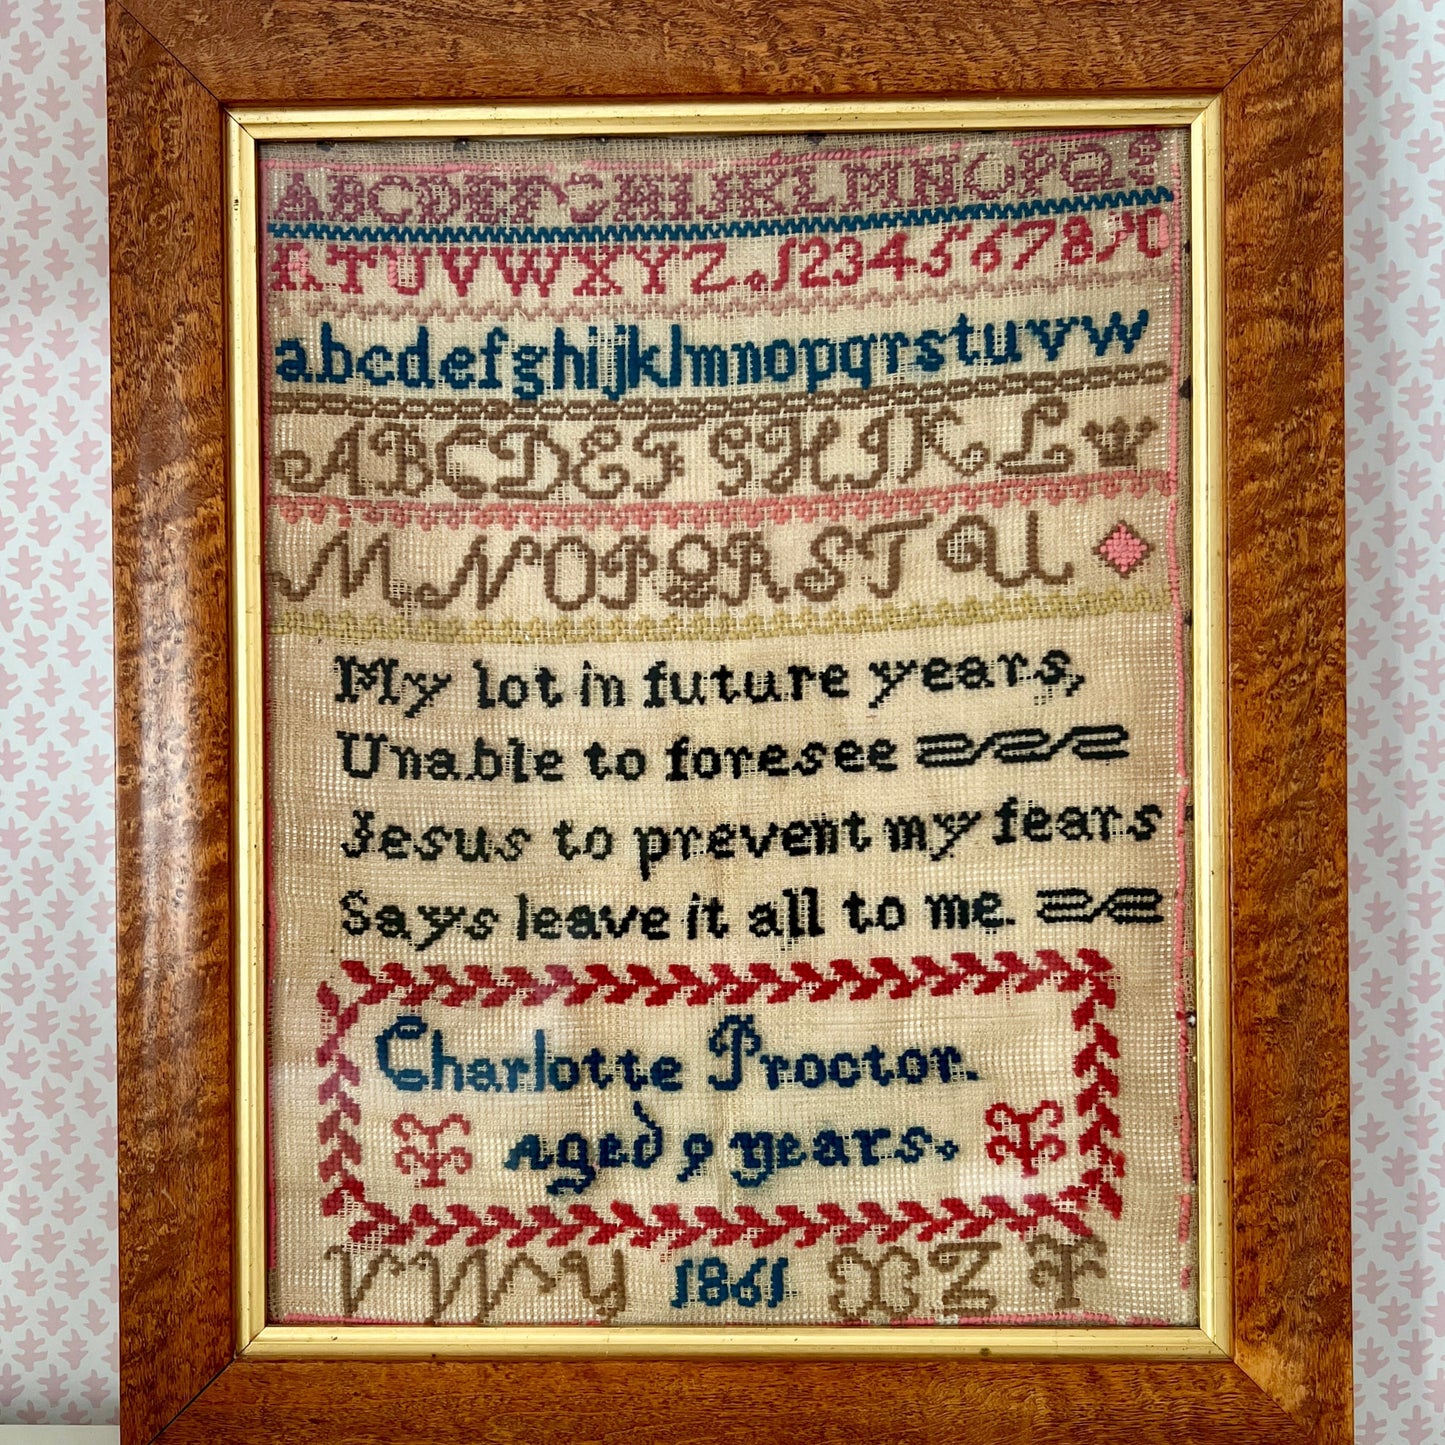 ABCDEFGHIJKLMNOPQS
RTUVWXYZ.12345678910
abcdefghijklmnopqrstuvw
ABCDEFGHIJKL
MNOPQRSTU
My lot in future years,
Unable to foresee
Jesus to prevent my fears
Says leave it all to me.
Charlotte Proctor.
Aged 9 years.
VWY 1861 XZ